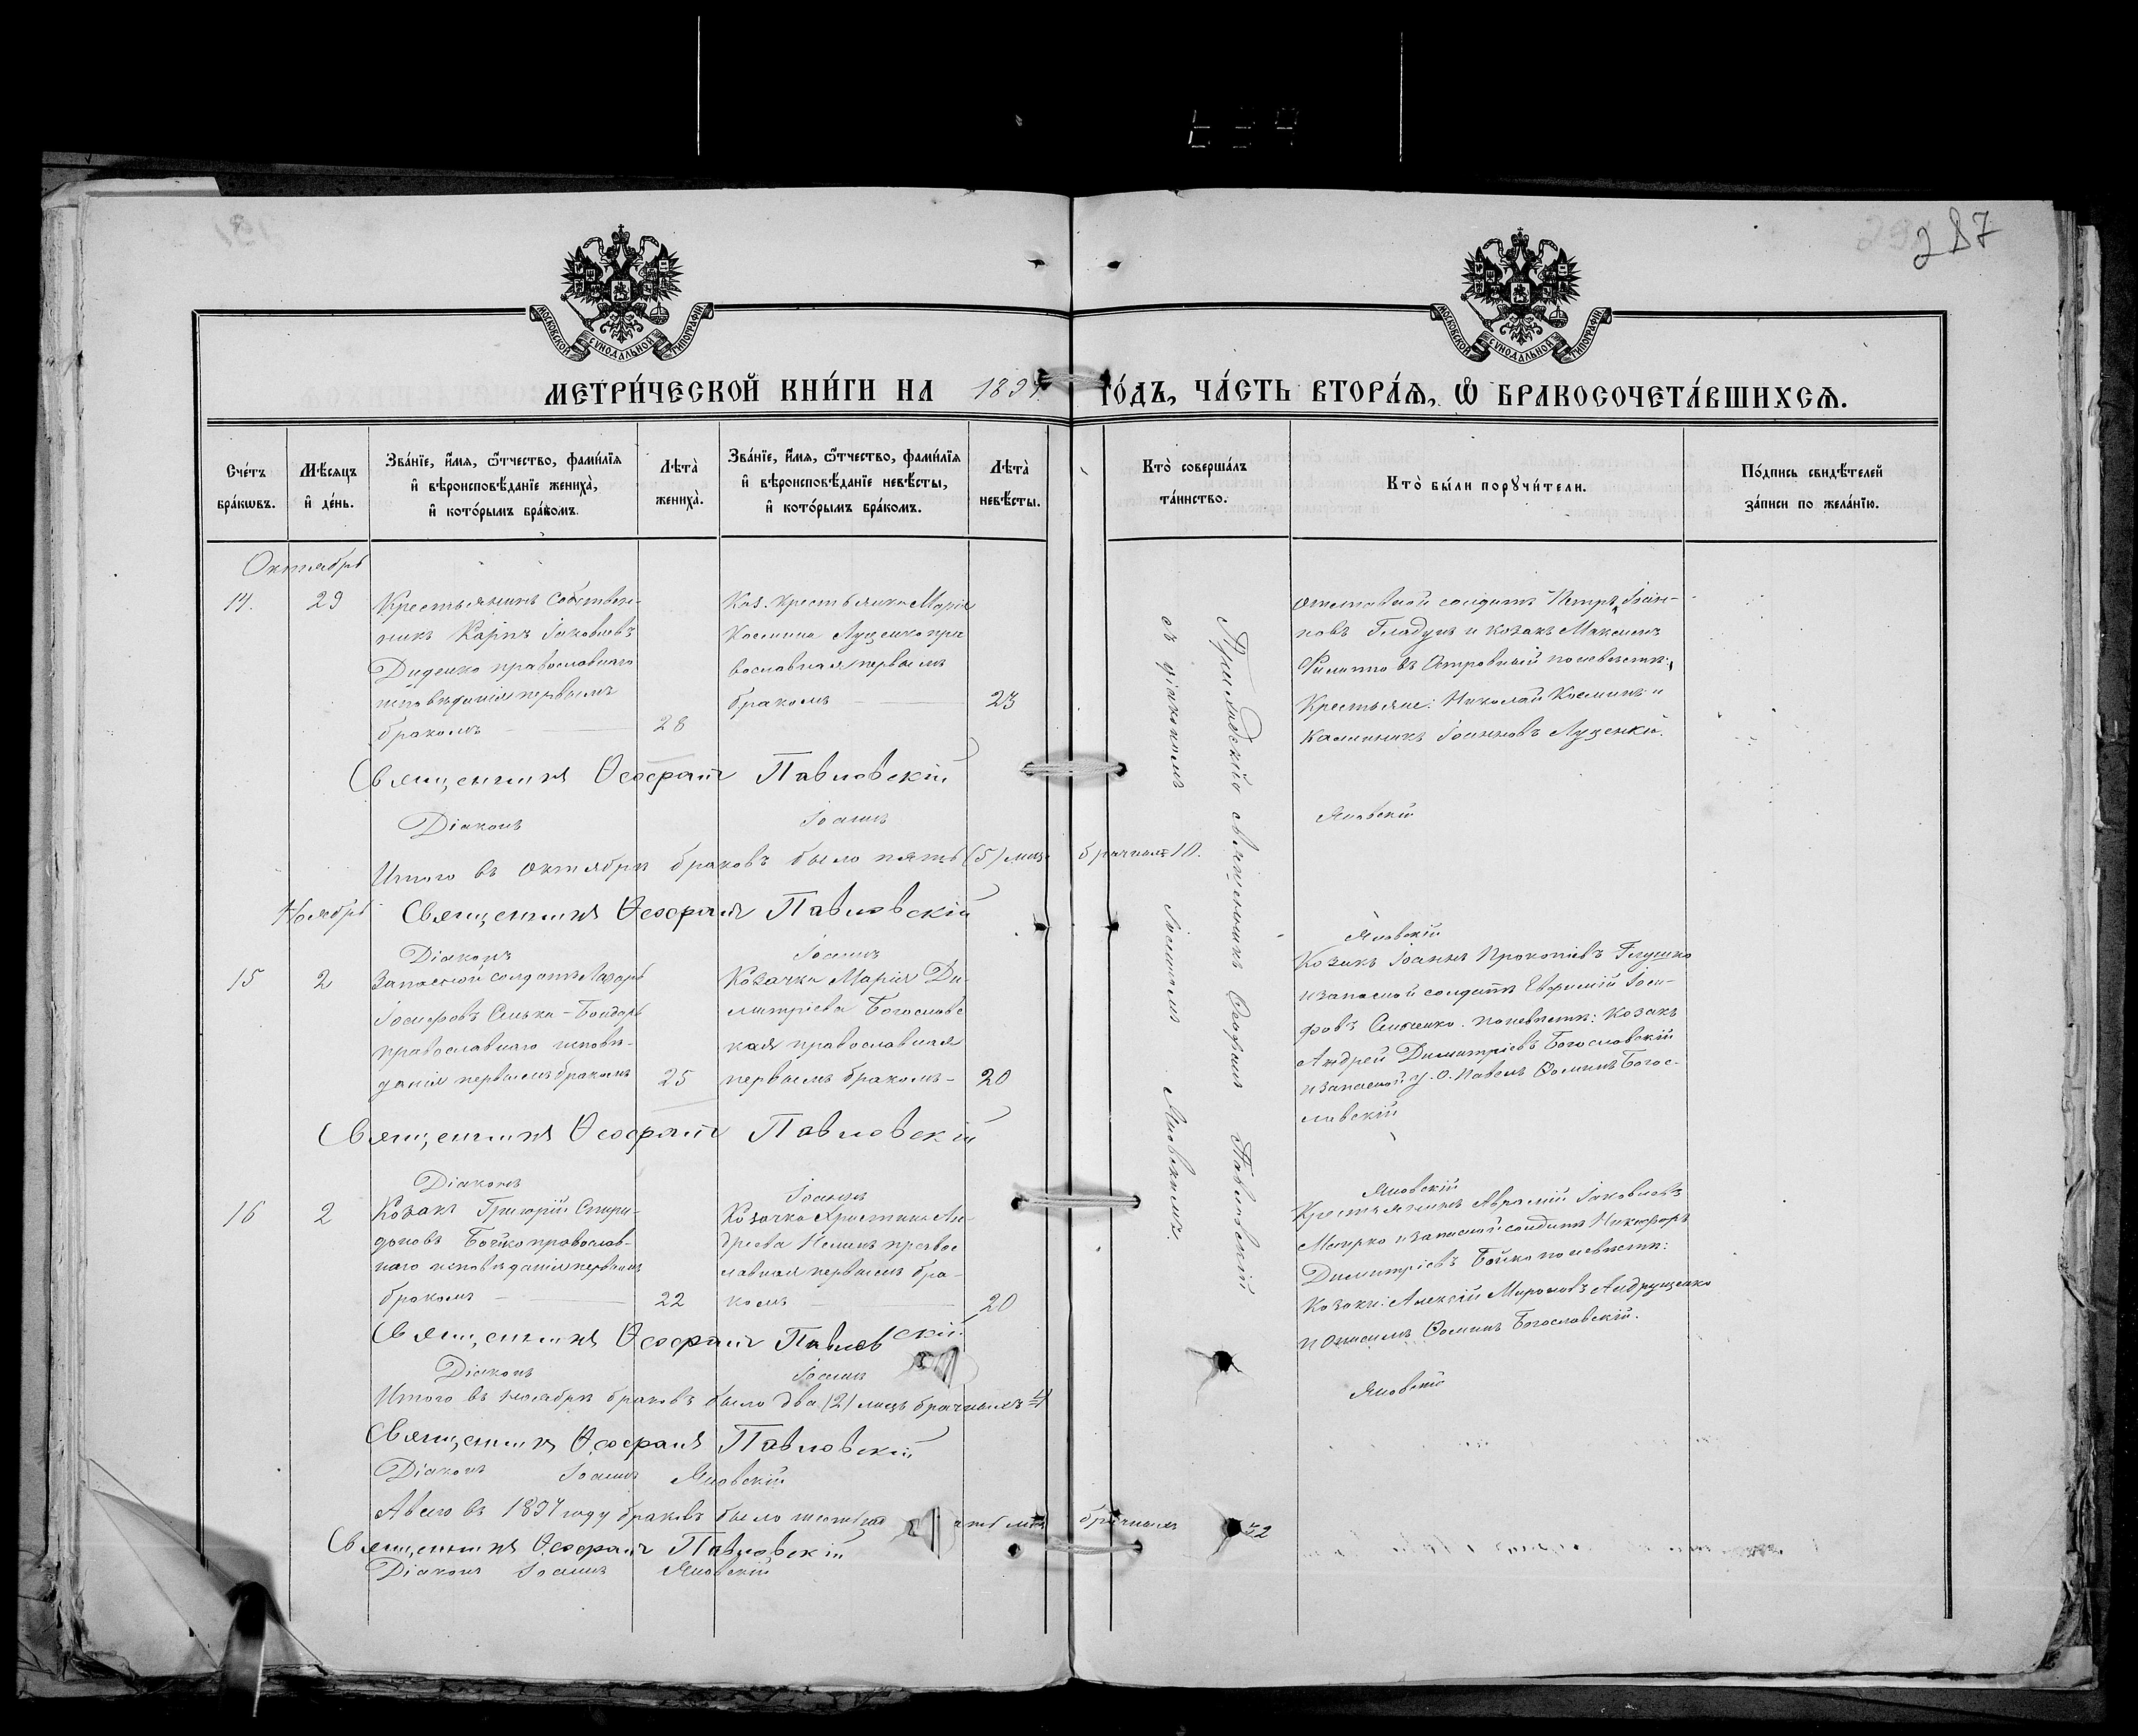 287
МОСКОВСКОЙ СУНОДАЛЬНОЙ ТИПОГРАФІИ
МОСКОВСКОЙ СУНОДАЛЬНОЙ ТИПОГРАФІИ
МЕТРИ́ЧЕСКОЙ КНИ́ГИ НА 1897 ГО́ДЪ, ЧА́СТЬ ВТОРА́Ѧ, Ѡ҆ БРАКОСОЧЕТА́ВШИХСѦ.
Сче́тъ бра́кѡвъ.
Мѣ́сѧцъ и҆ де́нь.
Зва́нїе, и҆́мѧ, ѻ҆́тчество, фами́лїѧ и҆ вѣроисповѣ́данїе жениха̀, и҆ кото́рымъ бра́комъ.
Лѣта̀ жениха̀.
Зва́нїе, и҆́мѧ, ѻ҆́тчество, фами́лїѧ и҆ вѣроисповѣ́данїе невѣ́сты, и҆ кото́рымъ бра́комъ.
Лѣта̀ невѣ́сты.
Кто̀ соверша́лъ та́инство.
Кто̀ бы́ли порꙋчи́тели.
По́дпись свидѣ́телей за́писи по жела́нїю.
Октябрь
14.
29
Крестьянинъ Собствен-
никъ Карпъ Іаковлевъ
Диденко православнаго
исповѣданія первымъ
бракомъ
28
Каз. крестьянка Марія
Космина Луценко пра
вославная первымъ
бракомъ
23
отставной солдатъ Петръ Іоан-
новъ Гладунъ и козакъ Максимъ
Крестьяне: Николай Косминъ и
Калиникъ Іоанновъ Луценки.
Приходскій священникъ Ѳеофанъ Павловскій
съ діакономъ Іоанномъ Яновскимъ.
Священникъ Ѳеофанъ Павловскій
Діаконъ Іоаннъ Яновскій
Итого въ октябрѣ браковъ было пять (5) лицъ брачных 10.
Ноябрь
Священникъ Ѳеофанъ Павловскій
Діаконъ Іоаннъ Яновскій
15
2
Запасной солдатъ Лазарь
Іосифовъ Бондарь
православнаго исповѣ-
данія первымъ бракомъ
25
Козачка Марія Ди-
митріева Богословс
кая православная
первымъ бракомъ
20
Козакъ Іоаннъ Прокопіевъ Глушко
и запасной солдатъ Евфимій Іоси-
фовъ по невѣстѣ: Козакъ
Андрей Димитріевъ Богословскій
и запасной у. о. Павелъ Ѳоминъ Богос-
ловскій
Священникъ Ѳеофанъ Павловскій
Діаконъ Іоаннъ Яновскій
16
2
Козакъ Григорій Спири-
доновъ Бойко православ-
наго исповѣданія первымъ
бракомъ
22
Козачка Христина Ан-
дреева правос
лавная первымъ бра-
комъ
20
Крестьянинъ Аврамій Іаковлевъ
и запасной солдатъ Никифоръ
Димитріевъ Бойко по невѣстѣ:
Козаки: Алексій Мироновъ Андрущенко
и Онисимъ Ѳоминъ Богословскій.
Священникъ Ѳеофанъ Павловскій
Діаконъ Іоаннъ Яновскій
Итого въ ноябрѣ браковъ было два (2) лицъ брачныхъ 4
Священникъ Ѳеофанъ Павловскій
Діаконъ Іоаннъ Яновскій
А всего въ 1897 году браковъ было брачных 32
Священникъ Ѳеофанъ Павловскій
Діаконъ Іоаннъ Яновскій